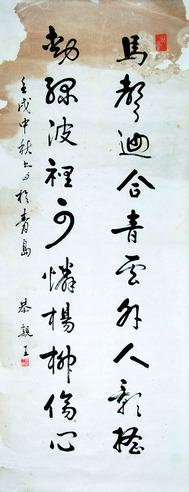 馬聲迴合青雲外人影搖
動綠波裡可憐楊柳傷心
壬戌中秋 於青島
恭親王